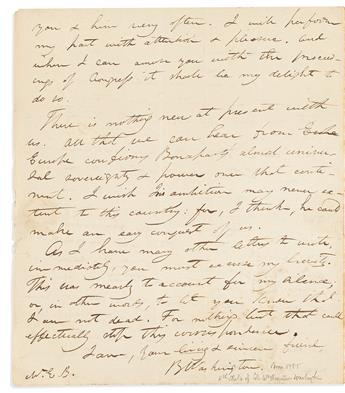 you & him very often. I will perform
my part with attention & pleasure. And
when I can amuse you with the proceed-
ings of Congress it shall be my delight to
do so.
There is nothing new at present with
us. All that we can hear from
Europe Bonaparte's almost univer-
sal sovereignty & power over that conti-
nent. I wish his ambition may never ex-
tend to this country: for, I think, he could
make an easy conquest of us.
As I have many other letters to write,
immediately, you must excuse my brevity.
This was merely to account for my silence,
or in other words, to let you know that
I am not dead. For nothing but that could
effectually stop this correspondence.
I am, your loving & sincere friend,
B Washington.
N.E.B.